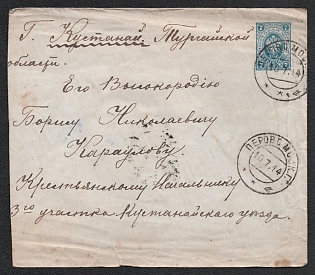 Г. Кустанай Тургайской
области.
Его Высокородію
Борису Николаевичу
Караулову
Крестьянскому Начальнику
3го участка Кустанайскаго уезда.
7
7
ПЕРОВЕ МОСК. Г.
16.7.14